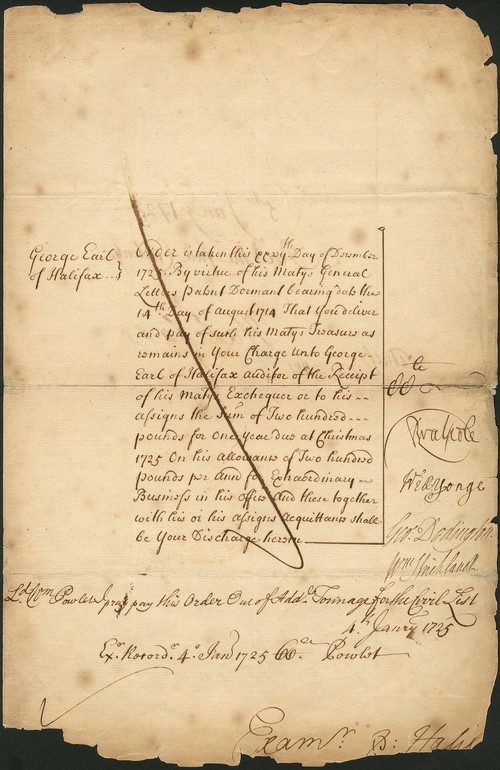 George Earl
of Halifax
Order is taken this xxvijth Day of December
1725. By virtue of his Matys General
Letters Patent Dormant bearing date the
14th Day of August 1714 That you deliver
and pay of such his Matys Treasure as
remains in Your Charge unto George
Earl of Halifax Auditor of the Receipt
of his Matys Exchequer or to his
assigns the Sum of Two hundred
pounds for One Year due at Christmas
1725 On his allowance of Two hundred
pounds per Ann for Extraordinary
Business in his Office And these together
with his or his assigns Acquittance shall
be Your Discharge herein
RWalpole
Wm Yonge
Geo: Dodington
Wm Strickland
Ld Com Powlet pray pay this Order Out of Addl Tonnage for the Civil List
4th Janry 1725
Exr Recordr 4o Janr 1725 Powlet
Examr: B: Halifax